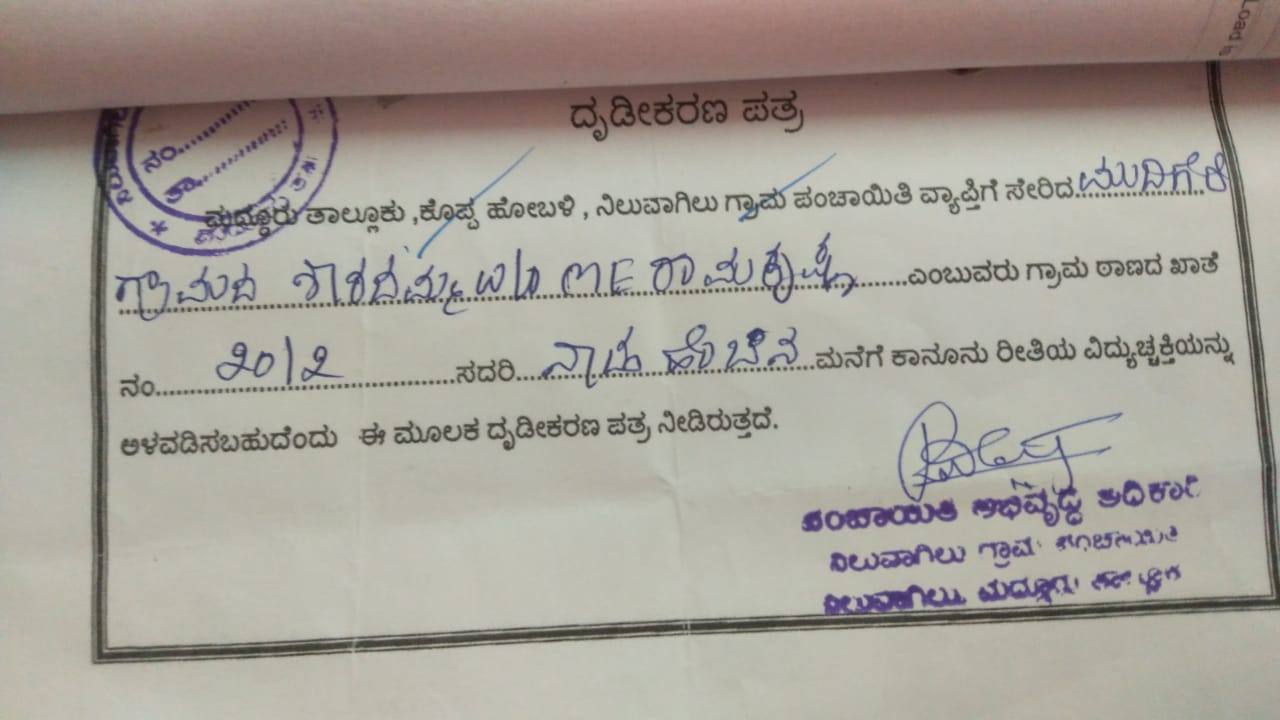 Load is
ದೃಡೀಕರಣ ಪತ್ರ
ನಂ..........
ತಾ..........
ಮದ್ದೂರು ತಾಲ್ಲೂಕು ,ಕೊಪ್ಪ ಹೋಬಳಿ , ನಿಲುವಾಗಿಲು ಗ್ರಾಮ ಪಂಚಾಯಿತಿ ವ್ಯಾಪ್ತಿಗೆ ಸೇರಿದ ಮುದಿಗೆರೆ
ಗ್ರಾಮದ ಶಾರದಮ್ಮ W/o ME ರಾಮಕೃಷ್ಣ ಎಂಬುವರು ಗ್ರಾಮ ಠಾಣದ ಖಾತೆ
ನಂ. ೨೦/೨ ಸದರಿ ಮನೆಗೆ ಕಾನೂನು ರೀತಿಯ ವಿದ್ಯುಚ್ಚಕ್ತಿಯನ್ನು
ಅಳವಡಿಸಬಹುದೆಂದು ಈ ಮೂಲಕ ದೃಡೀಕರಣ ಪತ್ರ ನೀಡಿರುತ್ತದೆ.
ಪಂಚಾಯಿತಿ ಅಭಿವೃದ್ಧಿ ಅಧಿಕಾರಿ
ನಿಲುವಾಗಿಲು ಗ್ರಾಮ ಪಂಚಾಯಿತಿ
ನಿಲುವಾಗಿಲು. ಮದ್ದೂರು